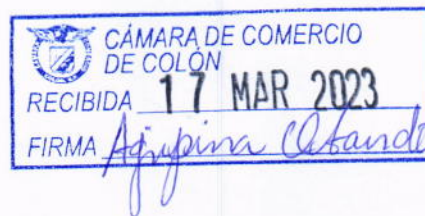 CÁMARA DE COMERCIO
DE COLÓN
RECIBIDA 17 MAR 2023
FIRMA Agripina